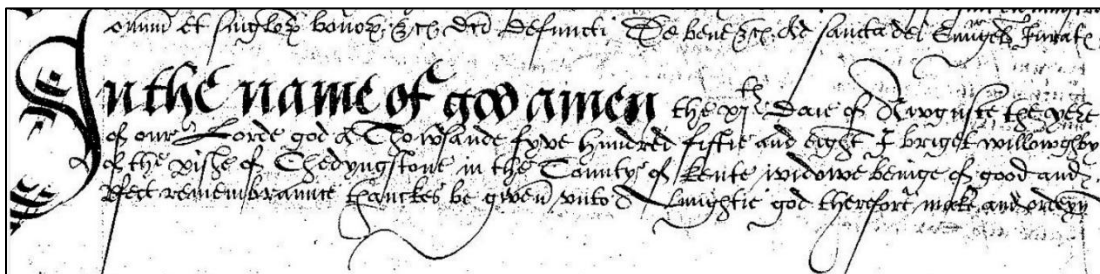 omnium et singlorum bonorum &c dict defuncti De bene &c Ad sancta dei Evangel Jurat
In the name of god amen the xjth daie of Awguste the yere
of our Lorde god a Thowsande fyve hundred fiftie and eight I briget willowghby
of the pishe of Chedyngstone in the Countye of Kente widowe beinge of good and
pfect remembrannce thanckes be given unto Allmightie god therefore make and ordeyn